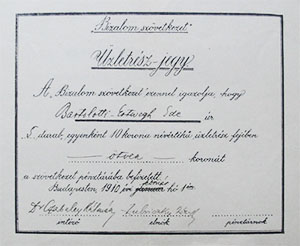 „Bizalom szövetkezet”
Üzletrész-jegy
A „Bizalom szövetkezet” ezennel igazolja, hogy
Bartolotti-Estwegh Ede úr
5 darab, egyenként 10 korona névértékű üzletrész fejében
ötven koronát
a szövetkezet pénztárába befizetett.
Budapesten, 1910. év június hó 1én
Dr
intéző elnök pénztárnok